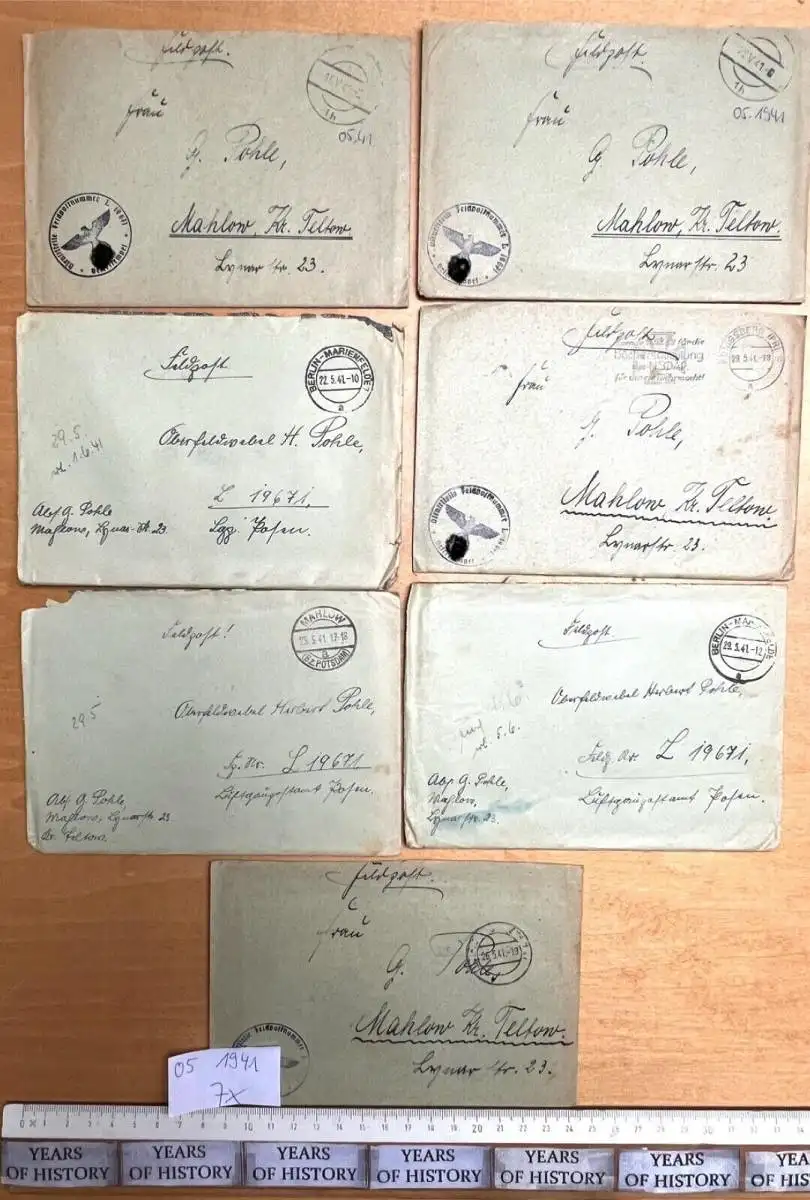 Feldpost.
05.41
Frau
G. Pohle,
Mahlow, Kr. Teltow.
Lynarstr. 23.
Feldpostnummer L
Feldpost.
05.1941
Frau
G Pohle,
Mahlow, Kr. Teltow.
Lynarstr. 23
Feldpostnummer L
Feldpost
BERLIN-MARIENFELDE
22.5.41.-10
a
29.5.
1.6.41
Oberfeldwebel H. Pohle,
L 19671,
Lgp. Posen.
Abs. G. Pohle
Mahlow, Lynar-Str. 23.
Feldpost
29.5.41.-18
Frau
G. Pohle,
Mahlow Kr. Teltow.
Lynarstr. 23.
Feldpostnummer L
Feldpost!
MAHLOW
a
(BZ. POTSDAM)
29.5
Oberfeldwebel Herbert Pohle,
Fp. Nr. L 19671
Luftgaupostamt Posen.
Abs. G. Pohle,
Mahlow, Lynarstr 23
Kr. Teltow.
Feldpost.
29.5.41.-12
a
5.6.
Oberfeldwebel Herbert Pohle,
Feldp. Nr. L 19671,
Luftgaupostamt Posen.
Abs. G. Pohle,
Mahlow,
Lynarstr. 23.
Feldpost.
Frau
26.5.41.
G. Pohle
Mahlow Kr. Teltow.
Lynarstr. 23.
Feldpostnummer
05 1941
7x
YEARS OF HISTORY
YEARS OF HISTORY
YEARS OF HISTORY
YEARS OF HISTORY
YEARS OF HISTORY
YEARS OF HISTORY